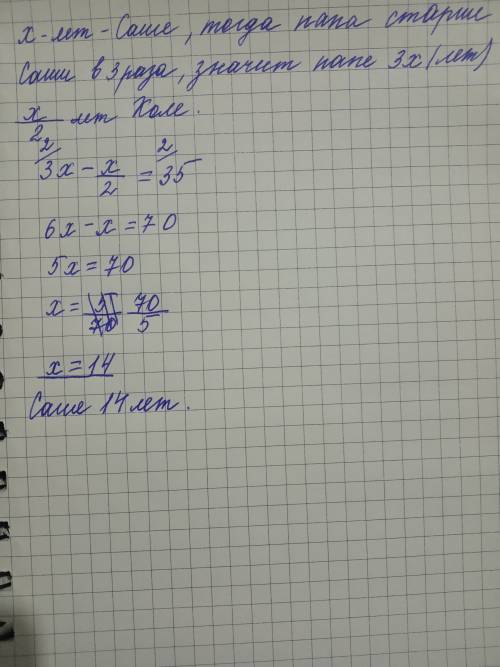 x-лет-Саше, тогда папа старше
Саши в 3 раза, значит папе 3x (лет)
x/2 лет Коле.
2/ 3x - x/2 = 2/ 35
6x - x = 70
5x = 70
x = 5/70 70/5
x = 14
Саше 14 лет.